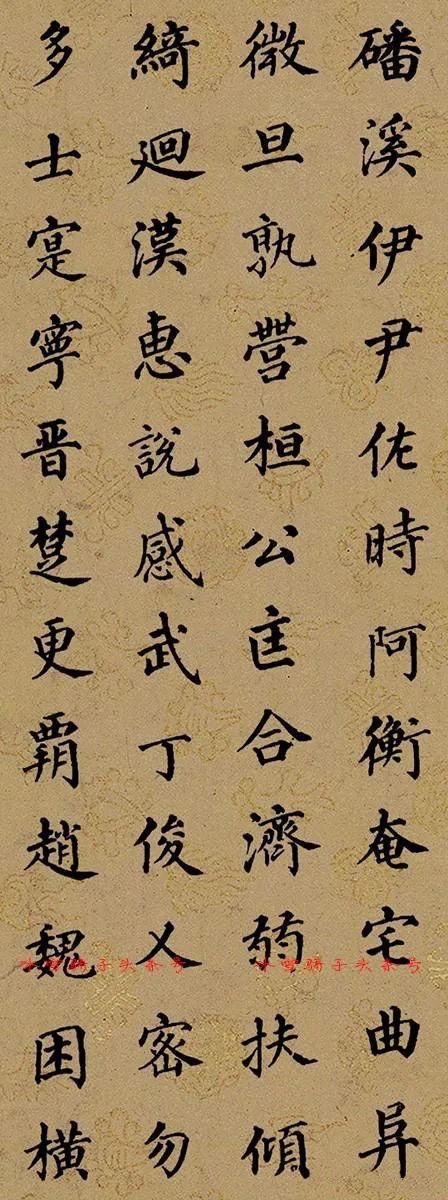 磻溪伊尹佐時阿衡奄宅曲阜
微旦孰營桓公匡合濟弱扶傾
綺迴漢惠說感武丁俊乂密勿
多士寔寧晋楚更覇趙魏困橫